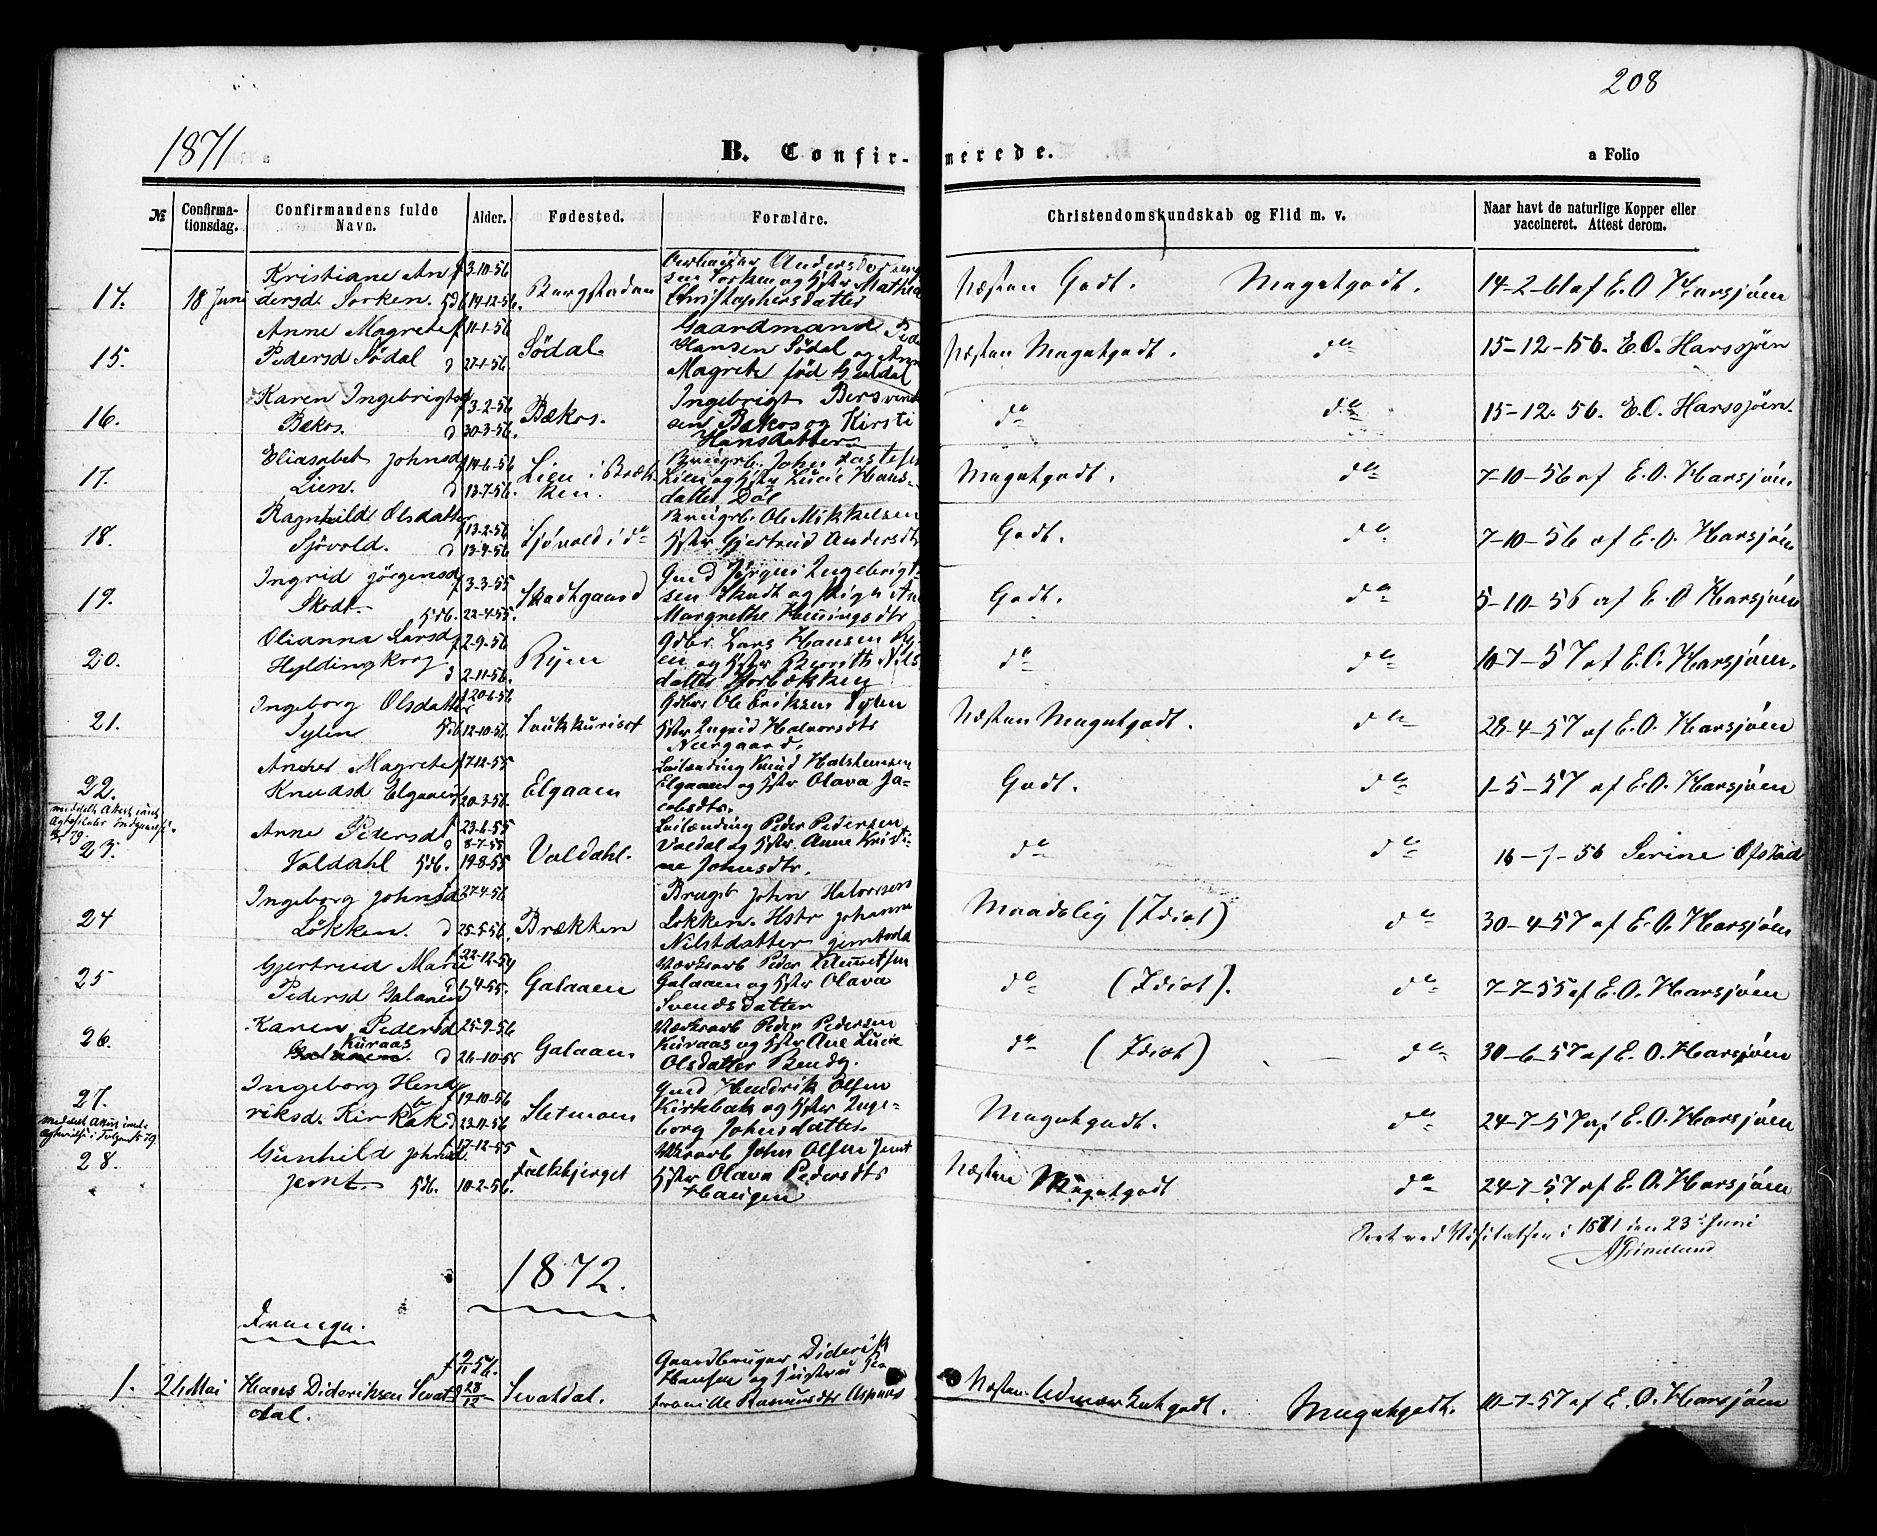 208
1871
B. Confirmerede.
a Folio
№
Confirmationsdag.
Confirmandens fulde Navn.
Alder.
Fødested.
Forældre.
Christendomskundskab og Flid m. v.
Naar havt de naturlige Kopper eller vaccineret. Attest derom.
14. 18 Juni Kristiane Andersd. Sorken. f 3-10-56 d 14-12-56. Bergstaden Anders Sorken og Hstr Mathea Christophersdatter Næsten Godt. Megetgodt. 14-2-61 af E. O Harsjøen
15. Anne Magrete Pedersd Sødal f 11-1-56 d 27-1-56. Sødal. Gaardmand Peder Hansen Sødal og Anne Magrete fød Næsten Megetgodt. do 15-12-56. E. O. Harssjøen
16. Karen Ingebrigtsd Bækos. f 3-2-56 d 30-3-56. Bækos. Ingebrigt Bersvendsen Bækos og Kirsti Hansdatter do do 15-12-56. E. O. Harssjøen.
17. Eliasabet Johnsd Lien. f 14-6-56 d 13-7-56. Lien i Brækken. Brugrb. John Lien og Hstr Lucie Hansdatter Døl Megetgodt. do 7-10-56 af E. O. Harsjøen
18. Ragnhild Olsdatter Sjövold. f 13-2-56 d 13-4-56. Sjövold i do Brugrb. Ole Mikkelsen Hstr Gjertrud Andersdtr Godt. do 7-10-56 af E. O. Harsjøen
19. Ingrid Jörgensd Skodt. f 3-3-55 Hd. 22-4-55. Skodtgaard Gmd Jørgen Ingebrigtsen Skodt og Margrethe Henningsdtr Godt. do 5-10-56 af E. O Harsjøen
20. Olianna Larsd Hyldingkorg f 2-9-56 d 2-11-56. Ryen Gdbr Lars Hansen Ryen og Hstr Berith Nilsdatter Borbækken do do 10-7-57 af E. O. Harsjøen.
21. Ingeborg Olsdatter Sylen f 20-6-56 Hd 12-10-56. Gdbr Ole Eriksen Sylen Hstr Ingrid Halvorsdtr Neergaard. Næsten Megetgodt. do 28-4-57 af E. O. Harsjøen
22. Magrete Knudsd Elgaaen f 7-12-55 20-3-56. Elgaaen Leilænding Knud Halstensen Elgaaen og Hstr Olava Jacobsdtr. Godt. do 1-5-57 af E. O. Harsjøen
23. Anne Pedersd Voldahl f 23-6-55 d 8-7-55 Hd. 19-8-55 Voldahl. Leilænding Peder Pedersen Voldal og Hstr Anne Kristine Johnsdtr. do do 16-7-56 Serine Ofstad
24 Ingeborg Johnsd Løkken. f 27-4-56 d 25-5-56. Brækken Brugb John Halvorsen Løkken. Hstr Johanna Nilsdatter Maadelig (Idiot) do 30-4-57 af E. O. Harsjøen
25 Gjertrud Marie Pedersd Galaaen f 22-12-54 d 1-4-55. Galaaen Værksarb Peder Galaaen og Hstr Olava Svendsdatter do (Idiot). do 7-7-55 af E. O. Harsjøen
26. Karen Pedersd Kuraas d 26-10-56 Galaaen Værksarb Peder Pedersen Kuraas og Hstr Ane Lucie Olsdatter do (Idiot) do 30-6-57 af E. O. Harsjøen
27. Ingeborg Hendriksd. Kirkbak f 19-10-56 d 23-11-56 Sletmoen Gmd Hendrik Olsen Kirkbak og Hstr Ingeborg Johnsdatter. Megetgodt. do 24-7-57 af E. O. Harsjøen
28. Gunhild Johnsd. Jemt. f 17-12-55 Hd. 10-2-56. Falkbjerget Vkrarb John Olsen Jemt Hstr Olava Pedersdtr Haugen Næsten Megetgodt do 24-7-57 af E. O. Harsjøen
Seet ved Visitatsen i 1871 den 23d Juni
AGrimelund
1872.
Drenge.
1. 26 Mai Hans Dideriksen Svatdal. Gaardbruger Diderik Hansen og Hustru Rasmusdtr Aspaas Næsten Udmærketgodt. Megetgodt. 10-7-57 af E. O. Harsjøen